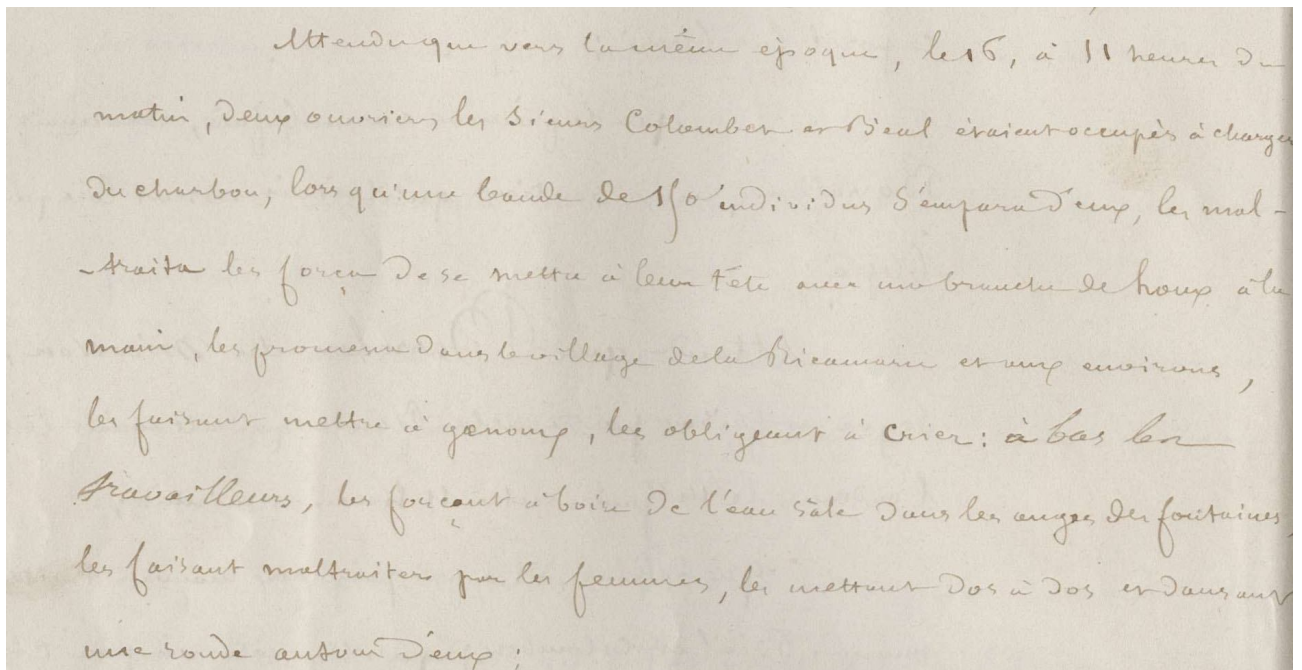 Attendu que vers la même époque, le 16, à 11 heures du
matin, deux ouvriers les sieurs Colombet et Béal étaient occupés à charger
du charbon, lorsqu'une bande de 150 individus s'empara d'eux, les mal-
-traita les força de se mettre à leur tête avec une branche de houx à la
main, les promena dans le village de la Ricamarie et aux environs,
les faisant mettre à genoux, les obligeant à crier : à bas les
travailleurs, les forçant à boire de l'eau sâle dans les auges des fontaines,
les faisant maltraiter par les femmes, les mettant dos à dos et dansant
une ronde autour d'eux ;